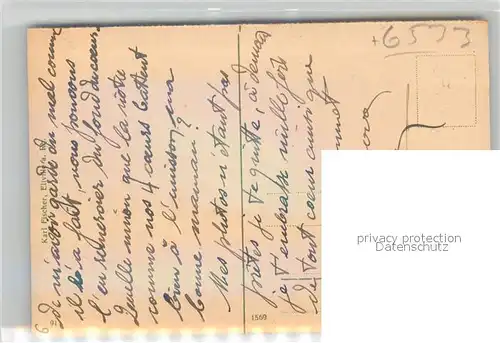 de m'avoir gardé du mal comme
il l'a fait, nous pouvons
l'en remercier du fond du cœur.
Quelle union que la nôtre
comme nos 4 cœurs battent
bien à l'unisson, ma
bonne maman ?
Mes photos n'étant pas
prêtes je te quitte, à demain
je t'embrasse mille fois
de tout cœur ainsi que
Karl Fischer,
1569
+6573
privacy protection
Datenschutz